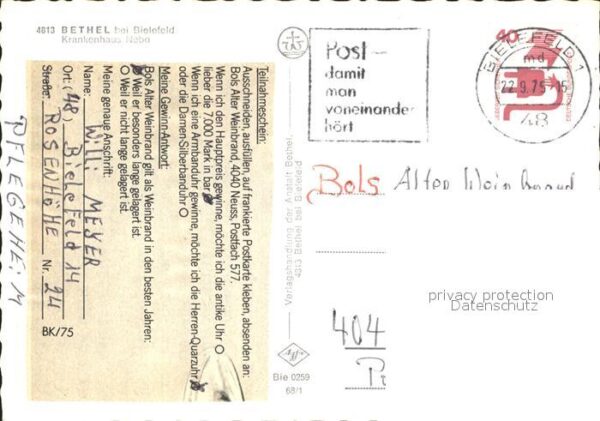 4813 BETHEL bei Bielefeld
Krankenhaus Nebo
Teilnahmeschein:
Ausschneiden, ausfüllen, auf frankierte Postkarte kleben, absenden an:
Bols Alter Weinbrand, 4040 Neuss, Postfach 577.
Wenn ich den Hauptpreis gewinne, möchte ich die antike Uhr
lieber die 7.000 Mark in bar
Wenn ich eine Armbanduhr gewinne, möchte ich die Herren-Quarzuhr
oder die Damen-Silberbanduhr
Meine Gewinn-Antwort:
Bols Alter Weinbrand gilt als Weinbrand in den besten Jahren:
Weil er besonders lange gelagert ist.
Weil er nicht lange gelagert ist.
Meine genaue Anschrift:
Name: Willi MEYER
Ort: (48) Bielefeld 14
Straße: ROSENHÖHE Nr. 24
BK/75
PFLEGEHEIM
Verlagshandlung der Anstalt Bethel,
4813 Bethel bei Bielefeld
Agfa
Bie 0259
68/1
Post-
damit
man
voneinander
hört
BIELEFELD 1
md
22.9.75-15
48
40
Bols Alter Weinbrand
privacy protection
Datenschutz
404